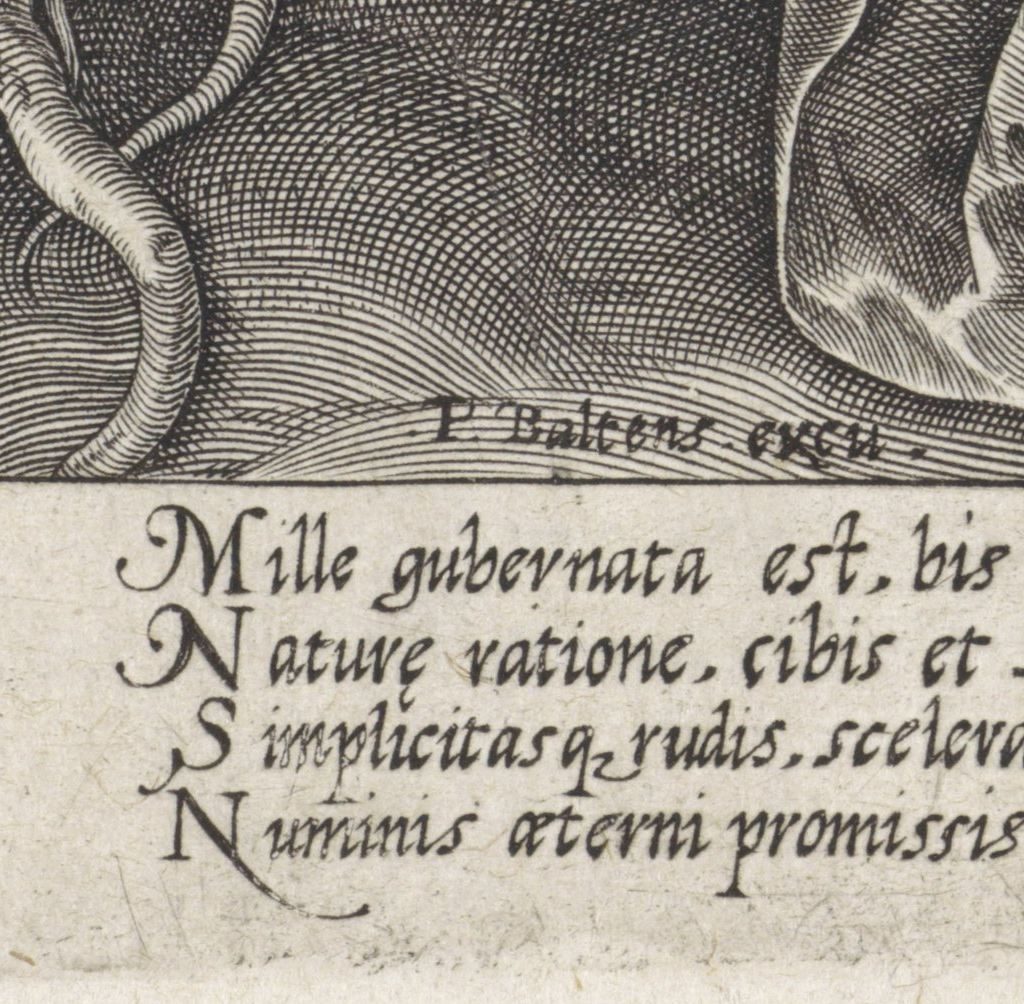 P. Baltens. excu.
Mille gubernata est, bis
Naturę ratione, cibis et
Simplicitasq, rudis, scelera
Numinis æterni promissis